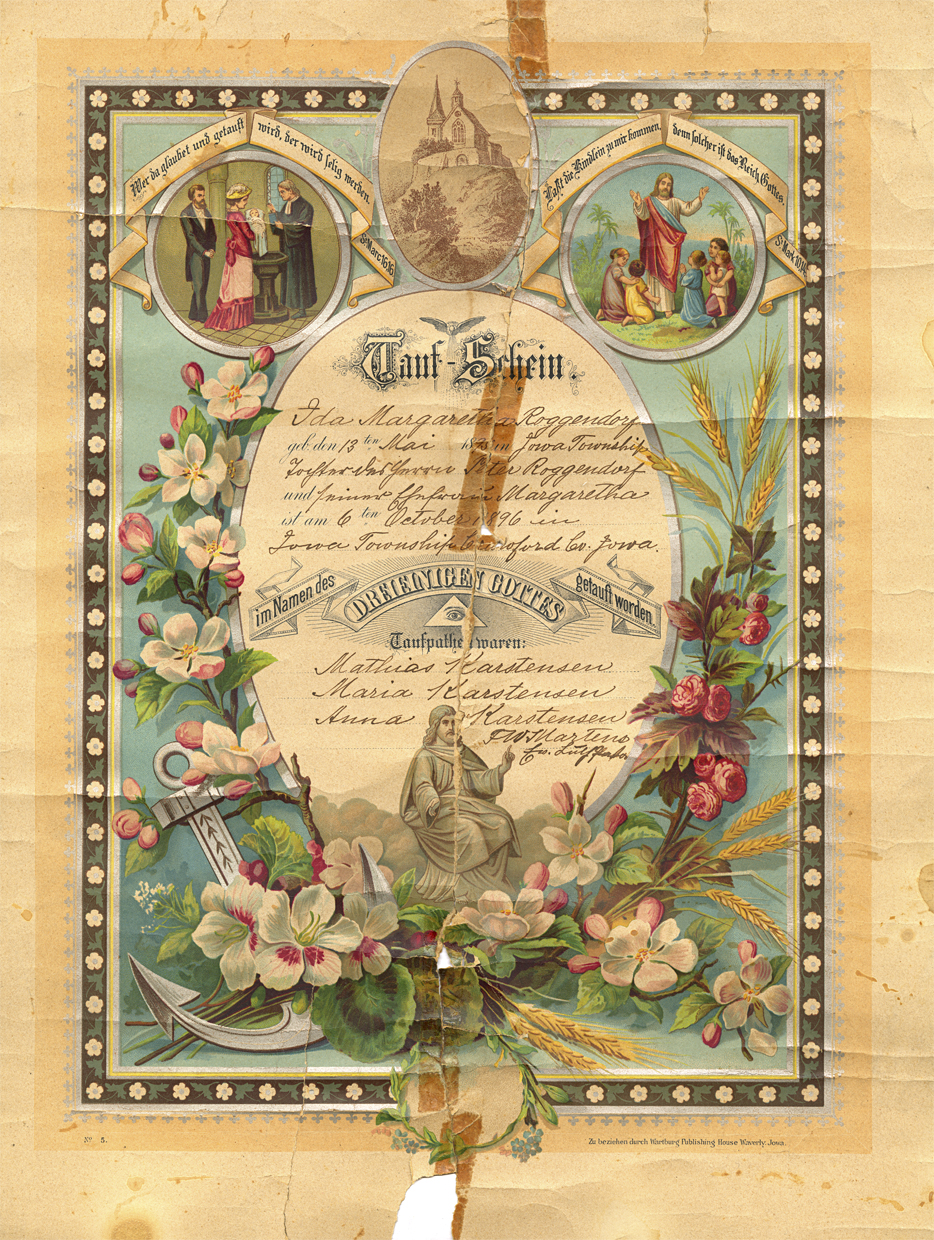 Wer da glaubet und getauft
wird, der wird selig werden.
St. Marc. 16,16
Laßt die Kindlein zu mir kommen,
denn solcher ist das Reich Gottes.
St. Mark. 10,14
Tauf-Schein.
Ida Margaretha Roggendorf
geb. den 13ten Mai in Iowa Township
Tochter des Herrn Peter Roggendorf
und seiner Ehefrau Margaretha
ist am 6ten October 1896 in
Iowa Township Crawford Co. Iowa.
im Namen des
DREIEINIGEN GOTTES
getauft worden.
Taufpathen waren:
Mathias Karstensen
Maria Karstensen
Anna Karstensen
F W Martens
Ev. Luth.
No. 5.
Zu beziehen durch Wartburg Publishing House Waverly, Iowa.